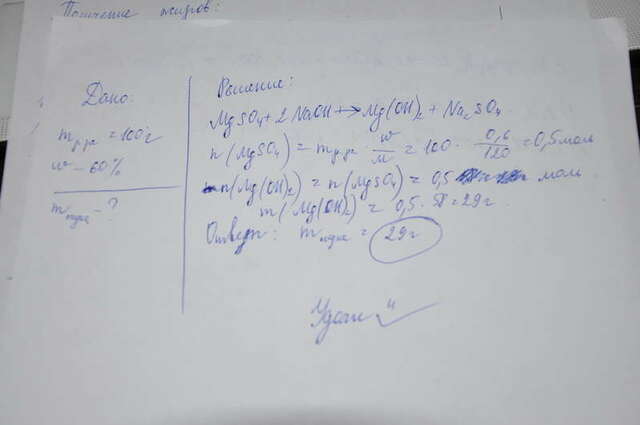 Получение жиров:
Дано:
m р-ра = 100г
w - 60%
m осадка - ?
Решение:
MgSO₄ + 2 NaOH → Mg(OH)₂ + Na₂SO₄
n(MgSO₄) = m р-ра · w/M = 100 · 0,6/120 = 0,5 моль
n(Mg(OH)₂) = n(MgSO₄) = 0,5 моль
m(Mg(OH)₂) = 0,5 · 58 = 29г.
Ответ: m осадка = 29г
Удачи